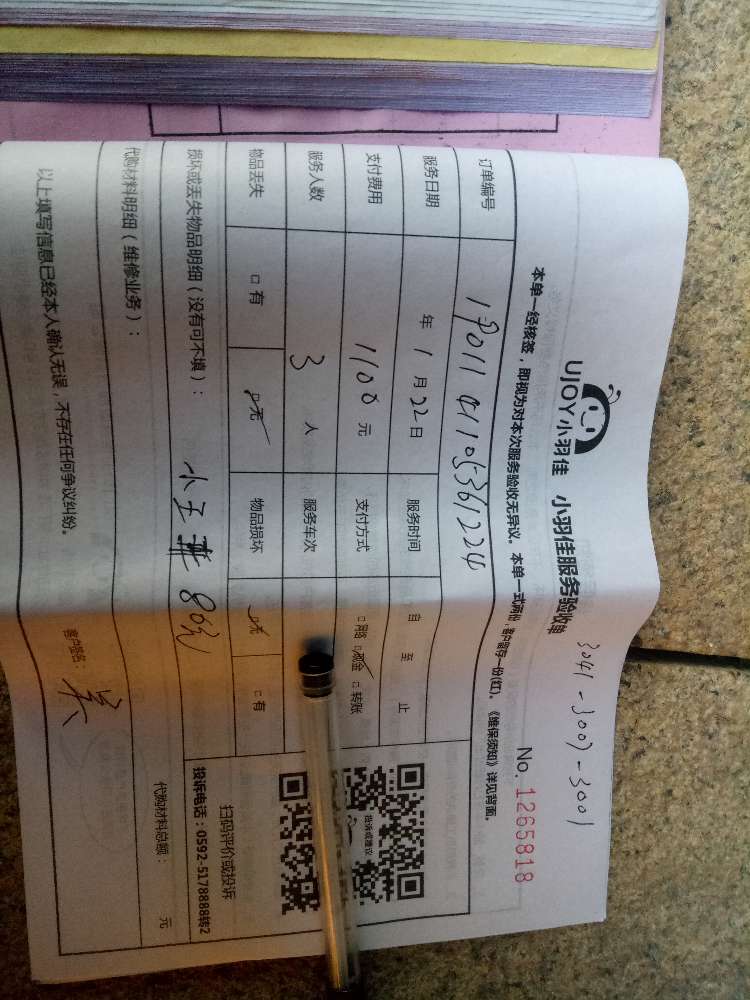 3041-3007-3001
UJOY小羽佳 小羽佳服务验收单
No. 1265818
本单一经核签，即视为对本次服务验收无异议。本单一式两份，客户留存一份(红)。《维保须知》详见背面。
订单编号 1901141105361224
服务日期 年 1 月 22 日 服务时间 自 至 止
支付费用 1100 元 支付方式 □ 网络 □ 现金 □ 转账
服务人数 3 人 服务车次
物品丢失 □ 有 □ 无 物品损坏 □ 无 □ 有
投诉或建议
扫码评价或投诉
投诉电话：0592-5178888转2
损坏或丢失物品明细（没有可不填）：
小五 80元
代购材料明细（维修业务）： 代购材料总额： 元
以上填写信息已经本人确认无误，不存在任何争议纠纷。 客户签名：